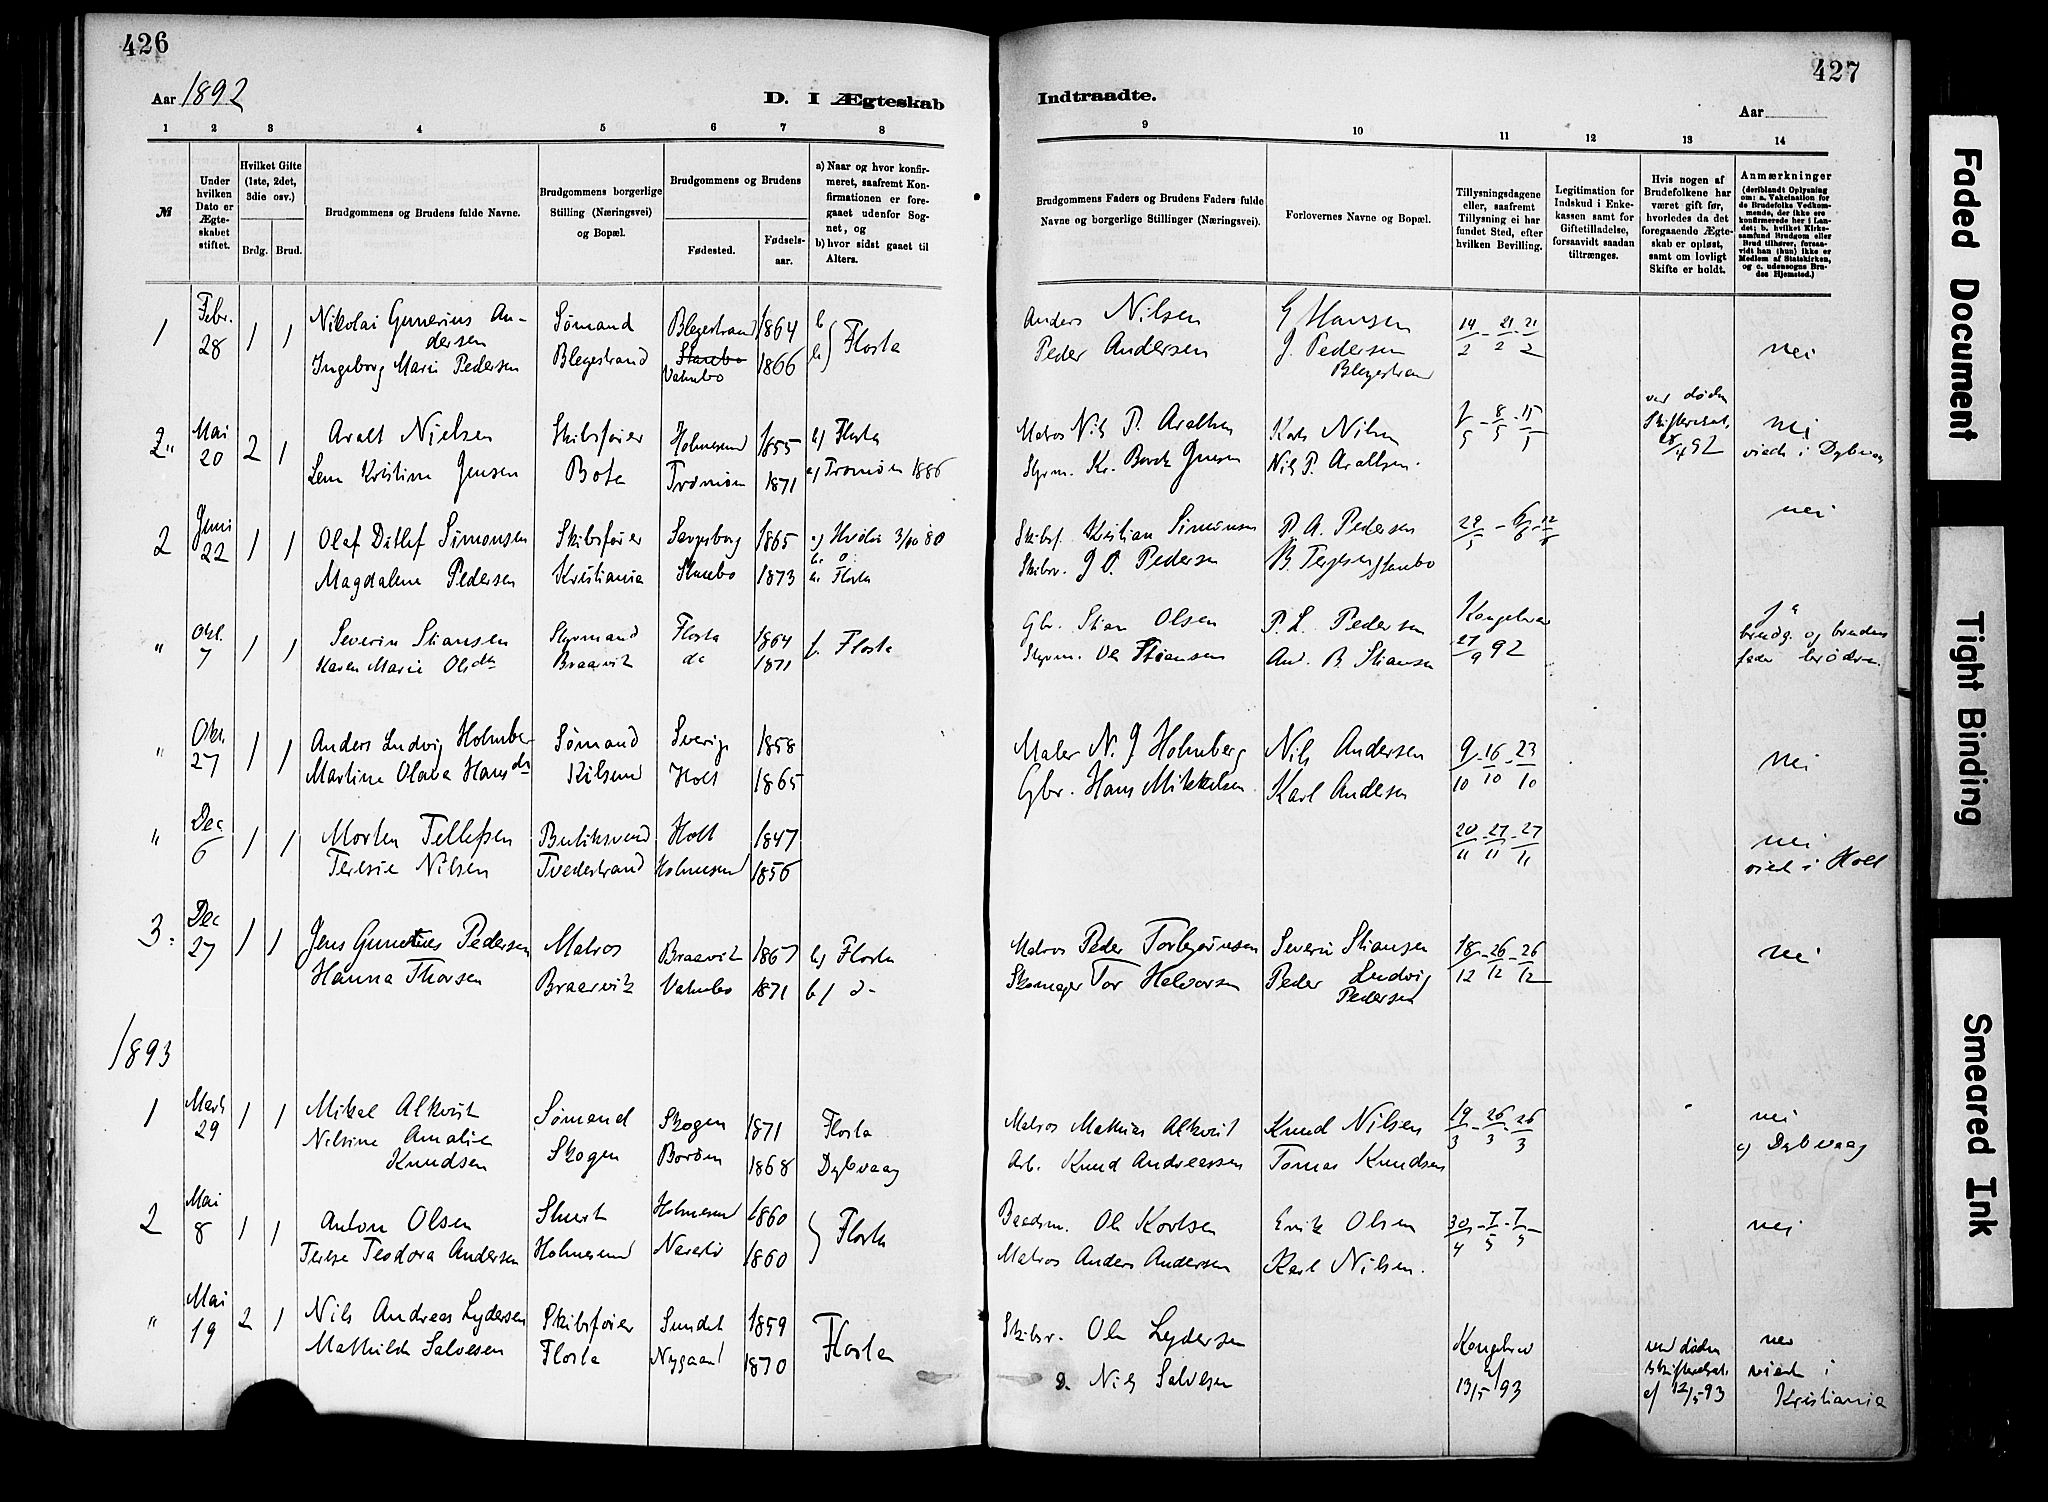 426
Aar 1892
D. I Ægteskab
1 2 3 4 5 6 7 8
№
Under hvilken Dato er Ægteskabet stiftet.
Hvilket Gifte (1ste, 2det, 3die osv.)
Brdg. Brud.
Brudgommens og Brudens fulde Navne.
Brudgommens borgerlige Stilling (Næringsvei) og Bopæl.
Brudgommens og Brudens
Fødested. Fødselsaar.
a) Naar og hvor konfirmeret, saafremt Konfirmationen er foregaaet udenfor Sognet, og
b) hvor sidst gaaet til Alters.
1 Febr. 28 1 1 Nikolai Gunerius Andersen Sømand Blegestrand 1864 b
Ingeborg Marie Pedersen Blegestrand Valnebo 1866 b Flosta
2" Mai 20 2 1 Aralt Nielsen Skibsfører Holmesund 1855 b) Flosta
Lena Kristine Jensen Bota Tromøen 1871 a) Tromøen 1886
2 Juni 22 1 1 Olaf Ditlef Simonsen Skibsfører Sarpsborg 1865 a) Hvaler 3/10 80
Magdalene Pedersen Kristiania Staubo 1873 b. Flosta
" Okt. 7 1 1 Severin Stiansen Styrmand Flosta 1864
Karen Marie Olsdtr Braavik do 1871 b. Flosta
" Okt. 27 1 1 Anders Ludvig Holmberg Sømand Sverige 1858
Martine Olava Hansdtr Kilsund Holt 1865
" Dec 6 1 1 Morten Tellefsen Butiksvend Holt 1847
Teresie Nilsen Tvedestrand Holmesund 1856
3. Dec 27 1 1 Jens Gunerius Pedersen Matros Braavik 1867 b) Flosta
Hanna Thorsen Braavik Valnebo 1871 b) d-
1893
1 Marts 29 1 1 Mikal Alkvist Sømand Skogen 1871 Flosta
Nilsine Amalie Knudsen Skogen Borøen 1868 Dybvaag
2 Mai 8 1 1 Anton Olsen Stuert Holmesund 1860
Terese Teodora Andersen Holmesund Narestø 1860 Flosta
" Mai 19 2 1 Nils Andreas Lydersen Skibsfører Sundet 1859
Mathilde Salvesen Flosta Nygaard 1870 Flosta
427
Indtraadte.
Aar
9 10 11 12 13 14
Brudgommens Faders og Brudens Faders fulde Navne og borgerlige Stillinger (Næringsvei).
Forlovernes Navne og Bopæl.
Tillysningsdagene eller, saafremt Tillysning ei har fundet Sted, efter hvilken Bevilling.
Legitimation for Indskud i Enkekassen samt for Giftetilladelse, forsaavidt saadan tiltrænges.
Hvis nogen af Brudefolkene har været gift før, hvorledes da det foregaaende Ægteskab er opløst, samt om lovligt Skifte er holdt.
Anmærkninger
(deriblandt Oplysning om: a. Vakcination for de Brudefolks Vedkommende, der ikke ere konfirmerede her i Landet; b. hvilket Kirkesamfund Brudgom eller Brud tilhører, forsaavidt han (hun) ikke er Medlem af Statskirken, og c. udensogns Brudes Hjemsted.)
Anders Nilsen G Hansen 14/2 - 21/2 - 21/2
Peder Andersen J. Pedersen nei
Blegestrand
Matros Nils P. Araltsen Karl Nilsen 1/5 - 8/5 - 15/5 ved døden Skifteretsat. 28/4 92 nei
Styrm. Kr. Borch Jensen Nils P. Araltsen. viede i Dybvaag
Skibsf. Kristian Simonsen P. A. Pedersen 29/5 - 6/6 - 12/6 nei
Skibsr. J. O. Pedersen B. Terjesen Staubo
Gbr. Stian Olsen P. L. Pedersen Kongebrev ja
Styrm. Ole Stiansen And. B. Stiansen 27/9 92 brudg. og brudens fader brødre.
Maler N. J Holmberg Nils Andersen 9/10 - 16/10 - 23/10
Gbr. Hans Mikkelsen Karl Andersen nei
20/11 - 27/11 - 27/11 nei
viede i Holt
Matros Peder Torbjørnsen Severin Stiansen 18/12 - 26/12 - 26/12 nei
Skomager Tor Halvorsen Peder Ludvig Pedersen
Matros Mathias Alkvist Knud Nilsen 19/3 - 26/3 - 26/3 nei
Arb. Knud Andreassen Tomas Knudsen c) Dybvaag
Baadsm. Ole Karlsen Erik Olsen 30/4 - 7/5 - 7/5 nei
Matros Anders Andersen Karl Nilsen.
Skibsr. Ole Lydersen Kongebrev af 13/5 93 ved døden Skifteretsat. af 12/5 93 nei
g. Nils Salvesen viede i Kristiania
Faded Document
Tight Binding
Smeared Ink